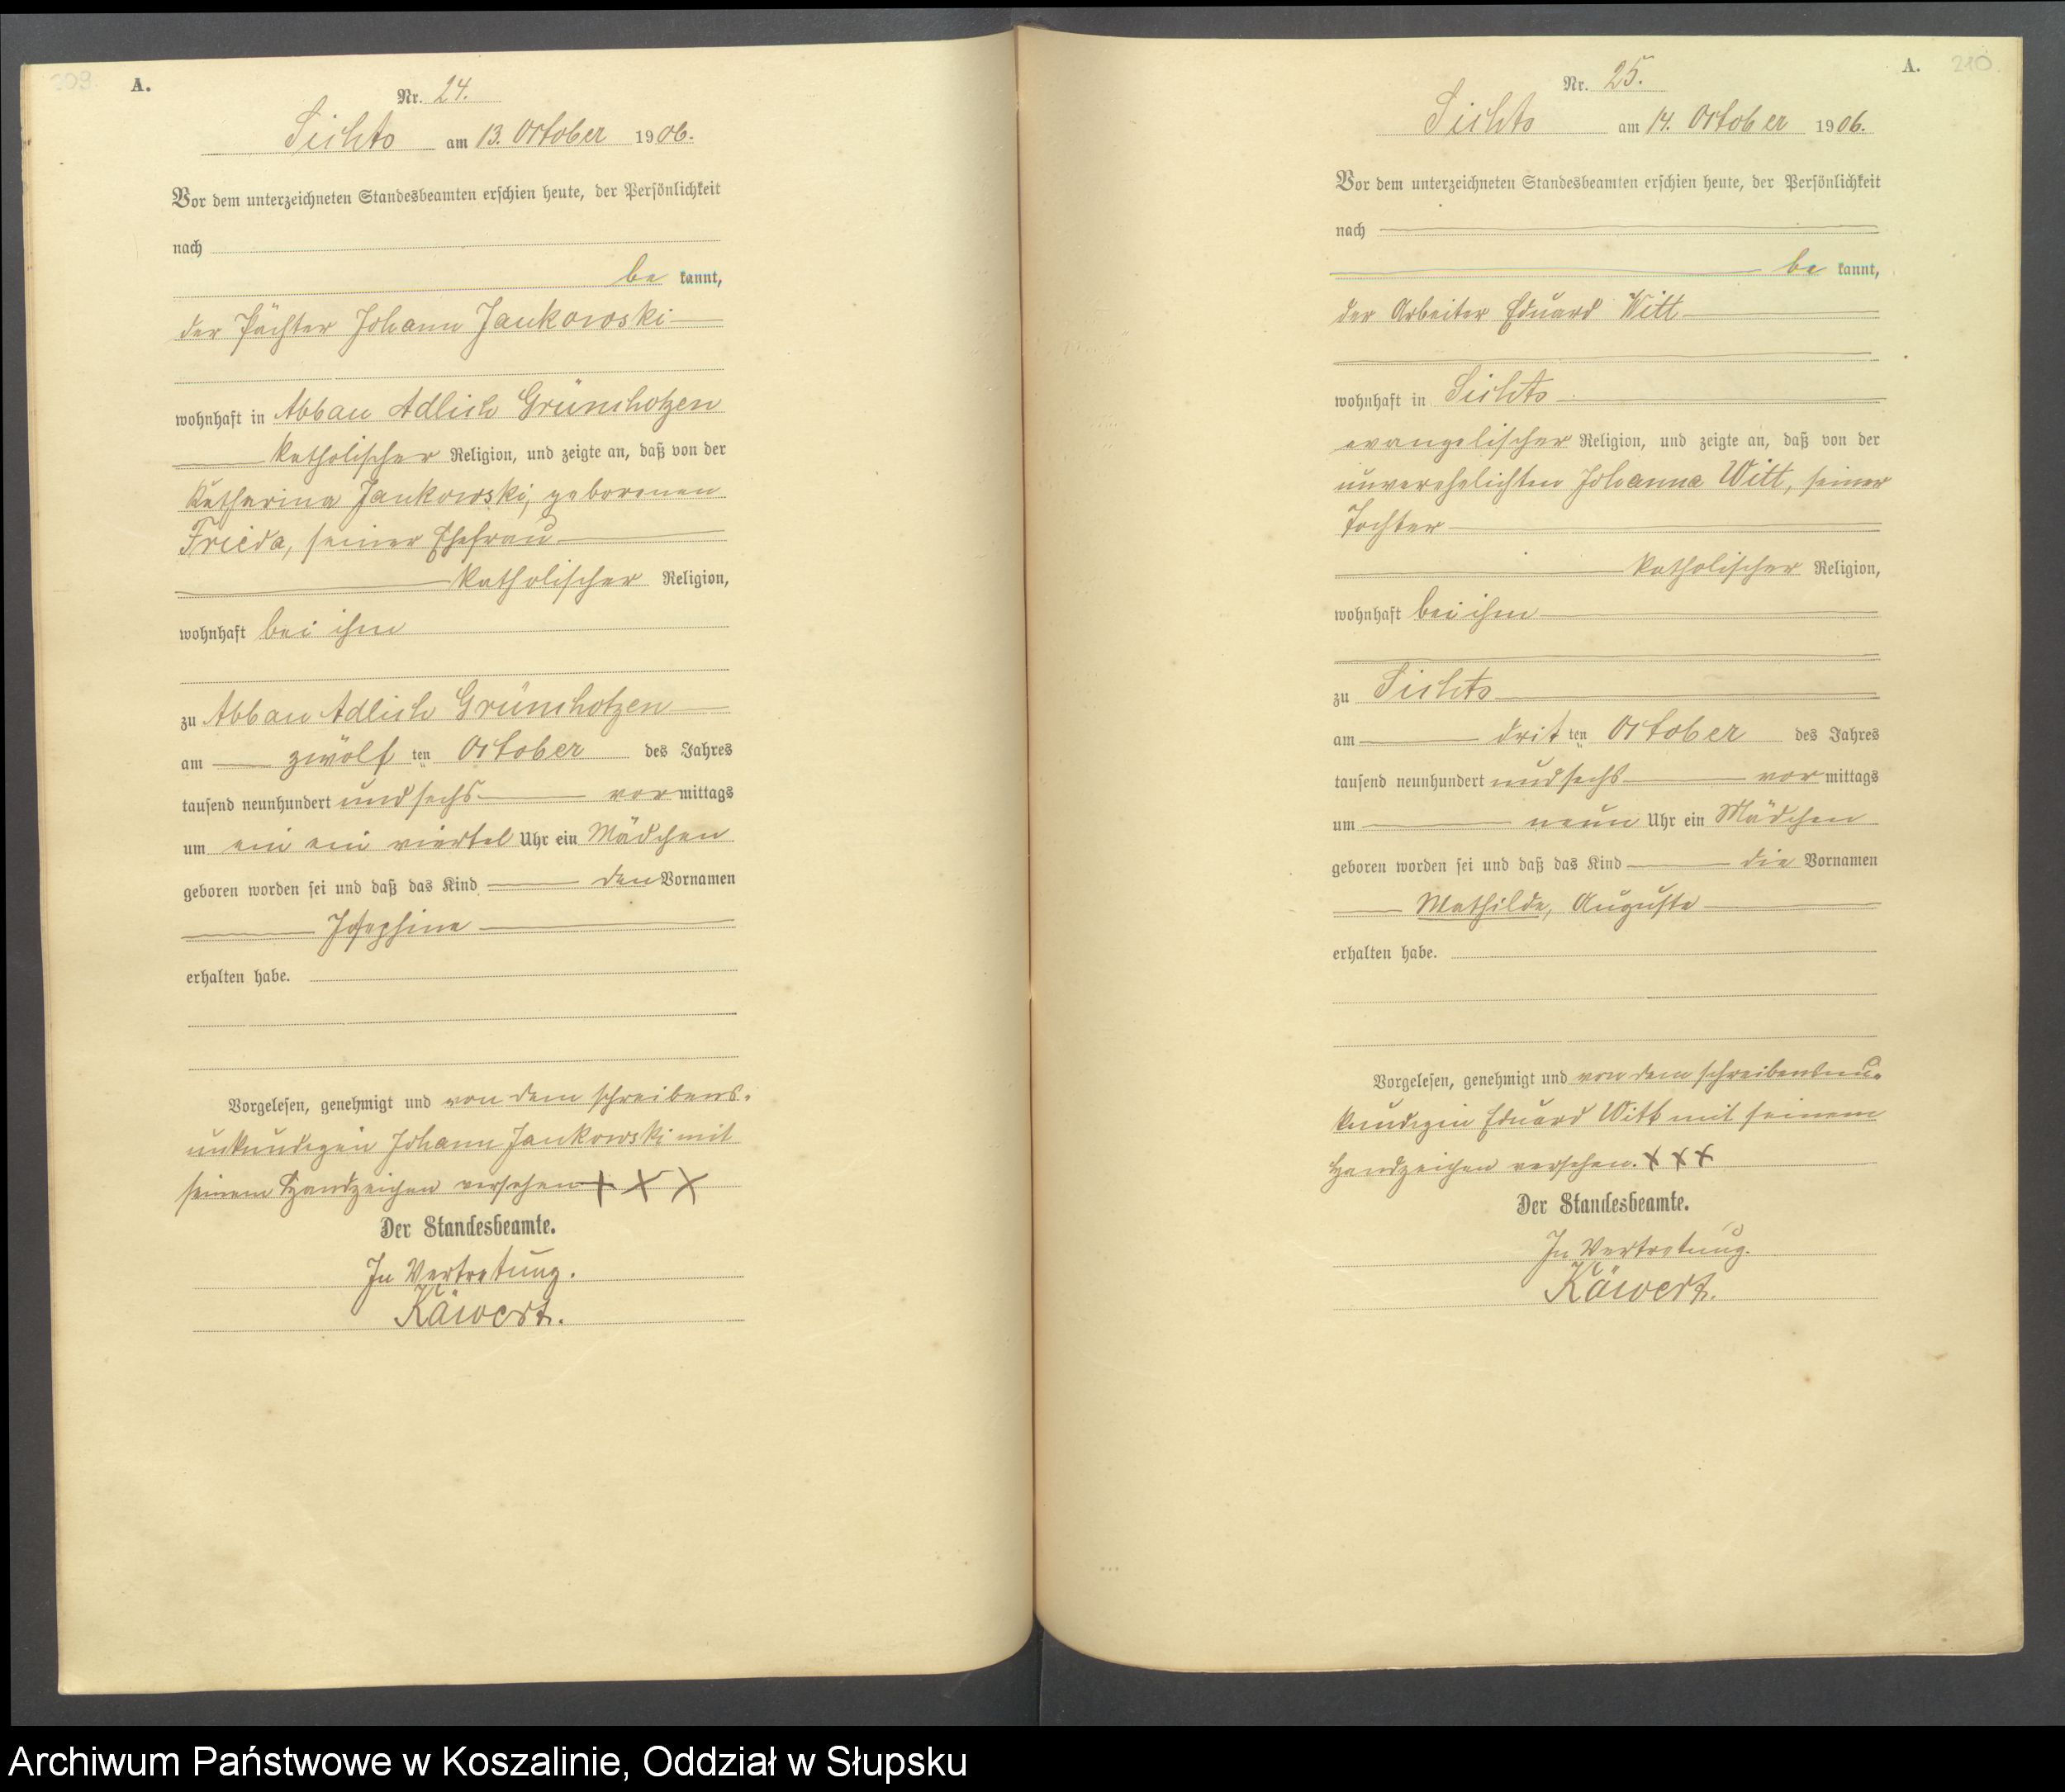 309.
A.
Nr. 24.
Sichts am 13. October 1906.
Vor dem unterzeichneten Standesbeamten erschien heute, der Persönlichkeit
nach
be kannt,
der Pächter Johann Jankowski
wohnhaft in Abbau Adlich Grünchotzen
katholischer Religion, und zeigte an, daß von der
Katharina Jankowski, geborenen
Frieda, seiner Ehefrau
katholischer Religion,
wohnhaft bei ihm
zu Abbau Adlich Grünchotzen
am zwölf ten October des Jahres
tausend neunhundert und sechs vor mittags
um ein ein viertel Uhr ein Mädchen
geboren worden sei und daß das Kind den Vornamen
Josephine
erhalten habe.
Vorgelesen, genehmigt und von dem schreibens-
unkundigen Johann Jankowski mit
seinem Handzeichen versehen + X X
Der Standesbeamte.
In Vertretung.
Käwert.
A.
210.
Nr. 25.
Sichts am 14. October 1906.
Vor dem unterzeichneten Standesbeamten erschien heute, der Persönlichkeit
nach
be kannt,
der Arbeiter Eduard Witt
wohnhaft in Sichts
evangelischer Religion, und zeigte an, daß von der
unverehelichten Johanna Witt, seiner
Tochter
katholischer Religion,
wohnhaft bei ihm
zu Sichts
am drit ten October des Jahres
tausend neunhundert und sechs vor mittags
um neun Uhr ein Mädchen
geboren worden sei und daß das Kind die Vornamen
Mathilde, Auguste
erhalten habe.
Vorgelesen, genehmigt und von dem schreibensun-
kundigen Eduard Witt mit seinem
Handzeichen versehen. X X X
Der Standesbeamte.
In Vertretung.
Käwert.
Archiwum Państwowe w Koszalinie, Oddział w Słupsku